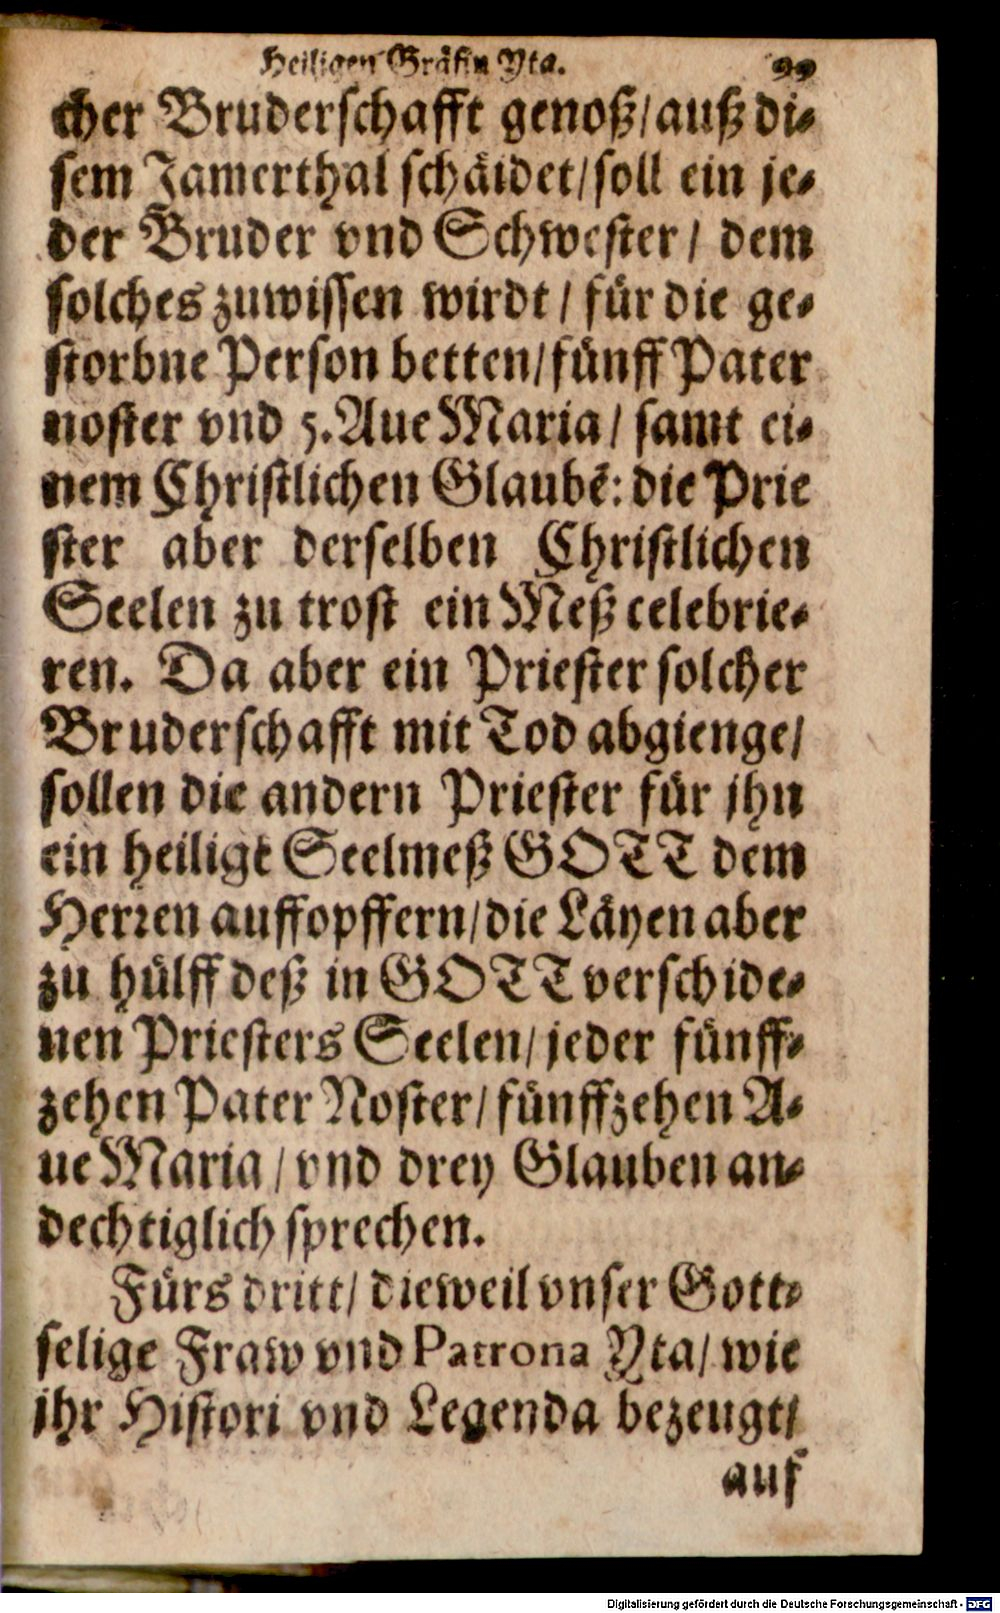 Heiligen Gräfin Yta. 99
cher Bruderschafft genoß/auß di-
sem Jamerthal schäidet/soll ein je-
der Bruder vnd Schwester/ dem
solches zuwissen wirdt/ für die ge-
storbne Person betten/fünff Pater
noster vnd 5. Aue Maria/ samt ei-
nem Christlichen Glaubē: die Prie
ster aber derselben Christlichen
Seelen zu trost ein Meß celebrie-
ren. Da aber ein Priester solcher
Bruderschafft mit Tod abgienge/
sollen die andern Priester für jhn
ein heilige Seelmeß GOTT dem
Herren auffopffern/die Läyen aber
zu hülff deß in GOTT verschide-
nen Priesters Seelen/jeder fünff-
zehen Pater Noster/fünffzehen A-
ue Maria/vnd drey Glauben an-
dechtiglich sprechen.
Fürs dritt/ dieweil vnser Gott-
selige Fraw vnd Patrona Yta/ wie
jhr Histori vnd Legenda bezeugt/
auf
Digitalisierung gefördert durch die Deutsche Forschungsgemeinschaft - DFG